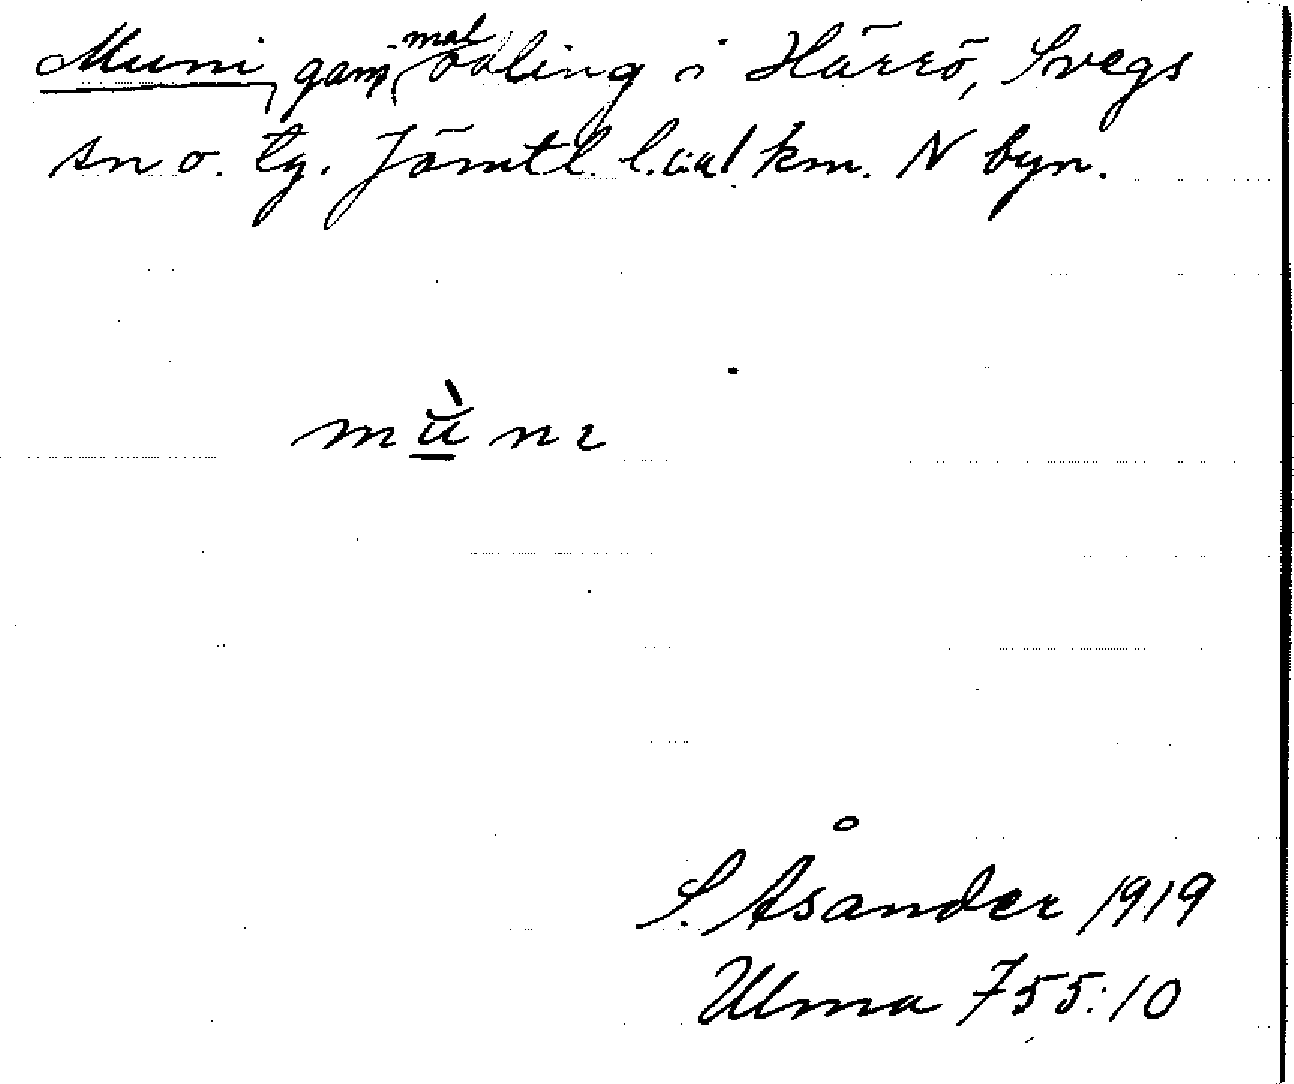 Muni, gammal odling i Härrö, Svegs
sn o. tg. Jämtl. l. 1 km. N byn.
mùnɩ
S. Åsander 1919
Ulma 755:10